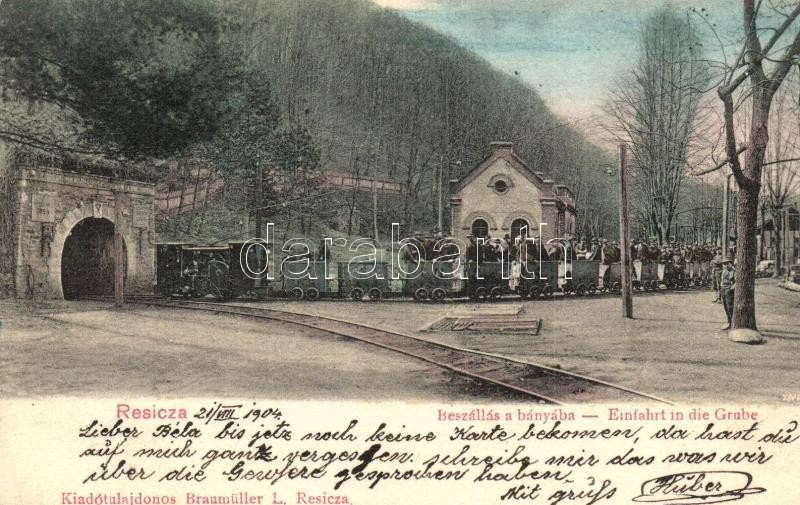 darabanth
Resicza 21/VIII 1904
Beszállás a bányába — Einfahrt in die Grube
Lieber Béla bis jetz noch keine Karte bekomen, da hast du
auf mich ganz vergessen. schreibe mir das was wir
über die Gewehre gesprochen haben,
Mit gruss Huber
Kiadótulajdonos Braumüller L. Resicza.